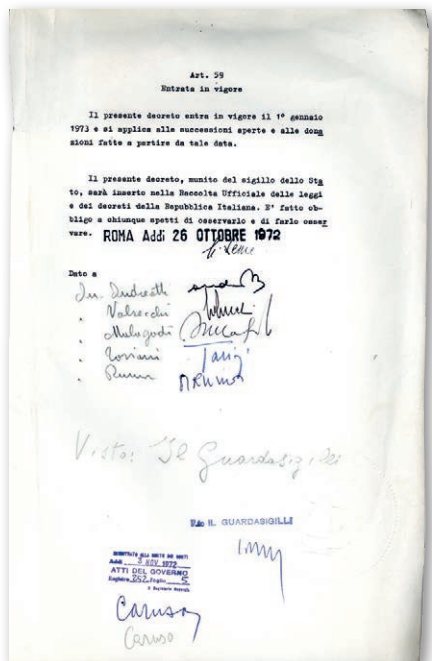 Art. 59
Entrata in vigore
Il presente decreto entra in vigore il 1° gennaio
1973 e si applica alle successioni aperte e alle dona
zioni fatte a partire da tale data.
Il presente decreto, munito del sigillo dello Sta
to, sarà inserto nella Raccolta Ufficiale delle leggi
e dei decreti della Repubblica Italiana. E' fatto ob-
bligo a chiunque spetti di osservarlo e di farlo osser
vare. ROMA Addì 26 OTTOBRE 1972
Dato a
Andreotti
Valsecchi
Malagodi
Taviani
Rumor
Visto: Il Guardasigilli
IL GUARDASIGILLI
REGISTRATO ALLA CORTE DEI CONTI
Addì 3 NOV 1972
ATTI DEL GOVERNO
Registro 252 Foglio 5
Caruso
Caruso